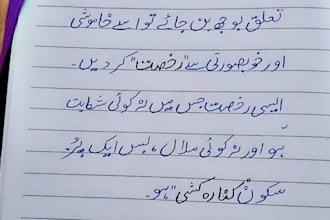 تعلق بوجھ بن جائے تو اسے خاموشی
اور خوبصورتی سے "رخصت" کر دیں۔
ایسی رخصت جس میں نہ کوئی شکایت
ہو اور نہ کوئی ملال، بس ایک پُر
سکون "کنارہ کشی" ہو۔